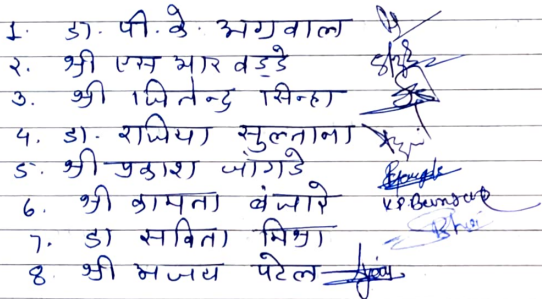 1. डा. पी. के. अग्रवाल
२. श्री एस आर वड्डे
3. श्री जितेन्द्र सिन्हा
4. डा. राजिया सुल्ताना
5. श्री प्रकाश जांगडे
6. श्री कामता बंजारे K.P. Banjare
7. डा सविता मिश्रा
8 श्री अजय पटेल